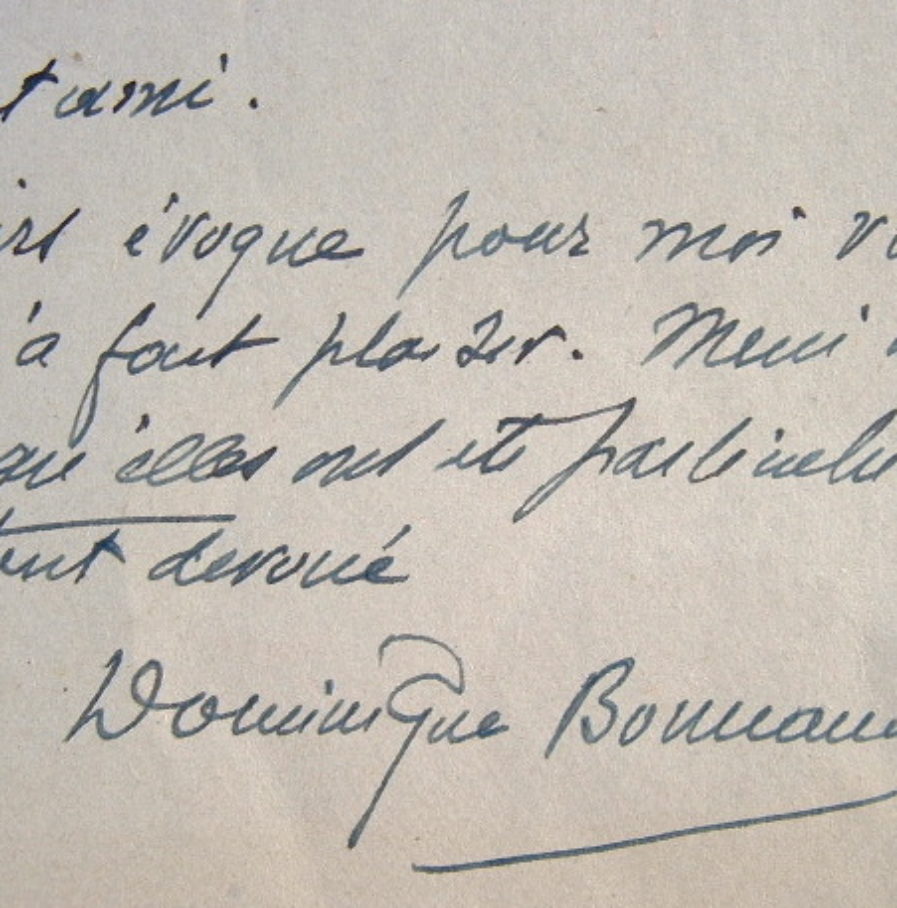 t ami.
évoque pour moi
'a fait plaisir. Merci
qu'elles ont été particuliè
tout devoué
Dominique Bonnau